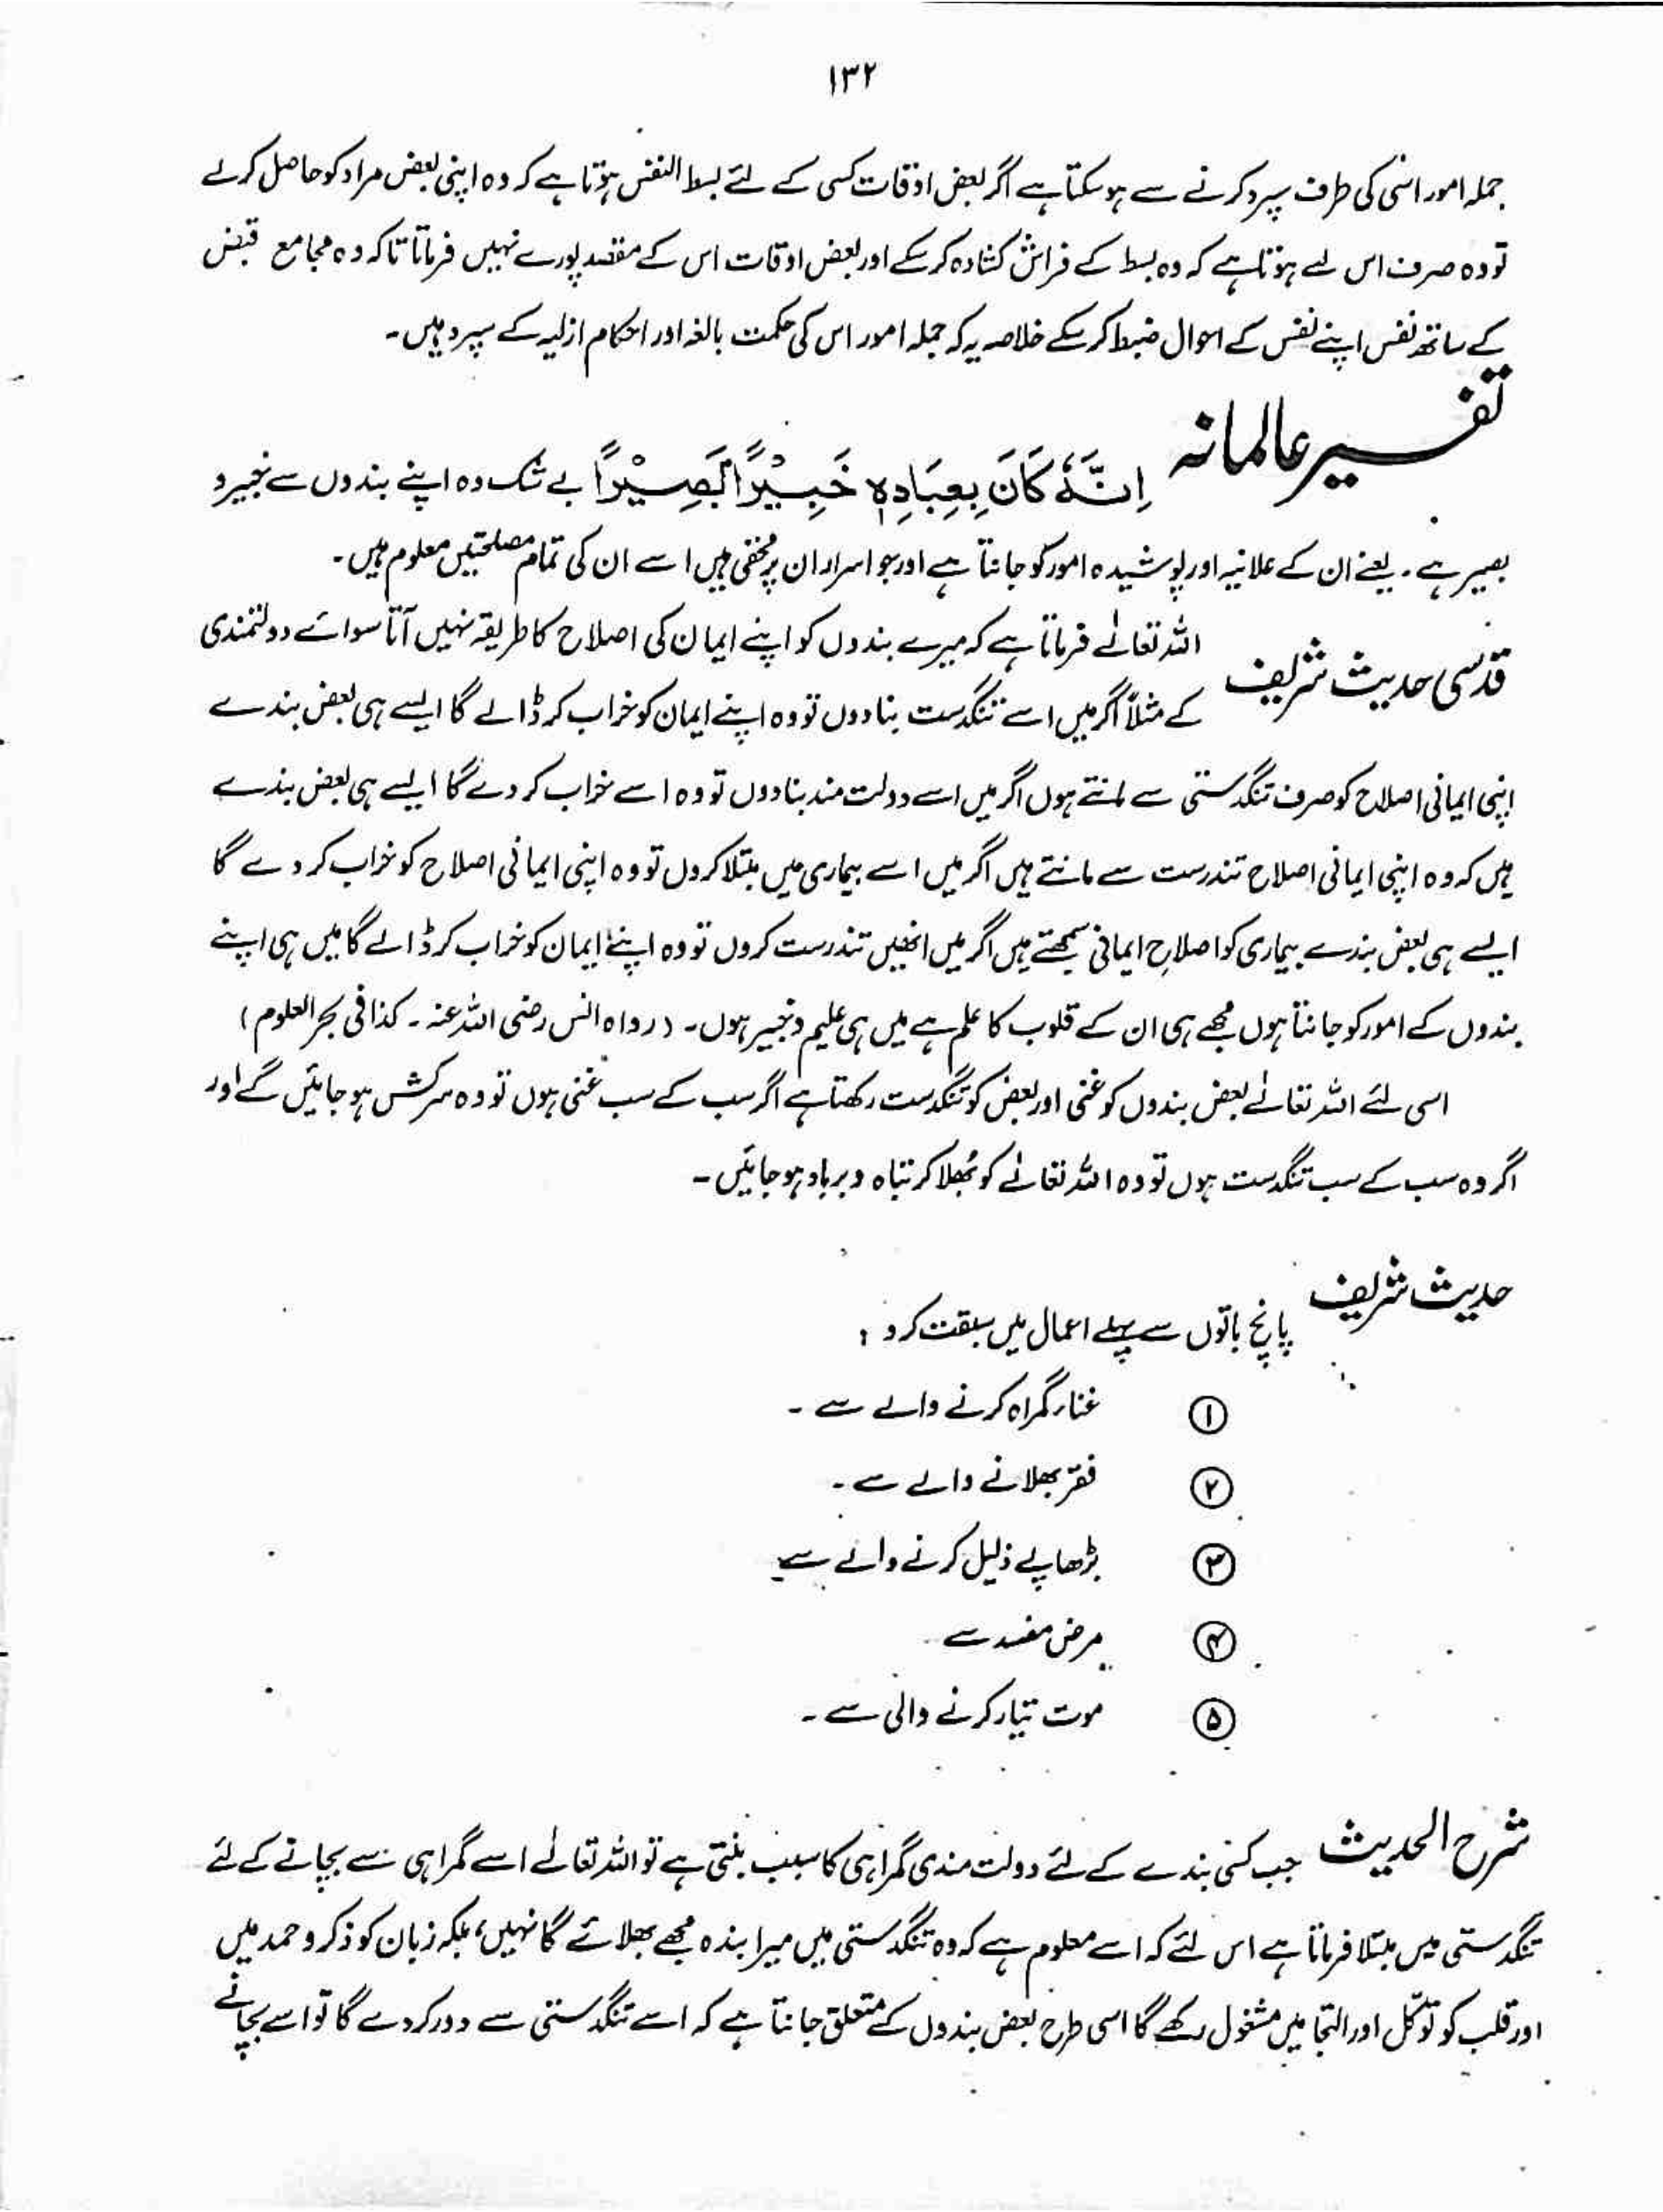 ۱۳۲
جملہ امور اسی کی طرف سپرد کرنے سے ہو سکتا ہے اگر بعض اوقات کسی کے لئے بسط النفس ہوتا ہے کہ وہ اپنی بعض مراد کو حاصل کرلے
تو وہ صرف اس لیے ہوتا ہے کہ وہ بسط کے فراش کشادہ کر سکے اور بعض اوقات اس کے مقصد پورے نہیں فرماتا تاکہ وہ مجامع قبض
کے ساتھ نفس اپنے نفس کے احوال ضبط کر سکے خلاصہ یہ کہ جملہ امور اس کی حکمت بالغہ اور احکام ازلیہ کے سپرد ہیں۔
تفسیر عالمانہ اِنَّهٗ كَانَ بِعِبَادِهٖ خَبِيْرًاۢ بَصِيْرًا بے شک وہ اپنے بندوں سے خبیر و
بصیر ہے۔ یعنے ان کے علانیہ اور پوشیدہ امور کو جانتا ہے اور جو اسرار ان پر مخفی ہیں اسے ان کی تمام مصلحتیں معلوم ہیں۔
قدسی حدیث شریف اللہ تعالےٰ فرماتا ہے کہ میرے بندوں کو اپنے ایمان کی اصلاح کا طریقہ نہیں آتا سوائے دولتمندی
کے مثلاً اگر میں اسے تنگدست بنا دوں تو وہ اپنے ایمان کو خراب کر ڈالے گا ایسے ہی بعض بندے
اپنی ایمانی اصلاح کو صرف تنگدستی سے مانتے ہوں اگر میں اسے دولت مند بنا دوں تو وہ اسے خراب کر دے گا ایسے ہی بعض بندے
ہیں کہ وہ اپنی ایمانی اصلاح تندرست سے مانتے ہیں اگر میں اسے بیماری میں مبتلا کروں تو وہ اپنی ایمانی اصلاح کو خراب کر دے گا
ایسے ہی بعض بندے بیماری کو اصلاحِ ایمانی سمجھتے ہیں اگر میں انھیں تندرست کروں تو وہ اپنے ایمان کو خراب کر ڈالے گا میں ہی اپنے
بندوں کے امور کو جانتا ہوں مجھے ہی ان کے قلوب کا علم ہے میں ہی علیم و خبیر ہوں۔ (رواہ انس رضی اللہ عنہ۔ کذا فی بحر العلوم)
اسی لئے اللہ تعالےٰ بعض بندوں کو غنی اور بعض کو تنگدست رکھتا ہے اگر سب کے سب غنی ہوں تو وہ سرکش ہو جائیں گے اور
اگر وہ سب کے سب تنگدست ہوں تو وہ اللہ تعالےٰ کو بُھلا کر تباہ و برباد ہو جائیں۔
حدیث شریف پانچ باتوں سے پہلے اعمال میں سبقت کرو:
① غناء گمراہ کرنے والے سے۔
② فقر بھلانے والے سے۔
③ بڑھاپے ذلیل کرنے والے سے
④ مرض مفسد سے
⑤ موت تیار کرنے والی سے۔
شرح الحدیث جب کسی بندے کے لئے دولت مندی گمراہی کا سبب بنتی ہے تو اللہ تعالےٰ اسے گمراہی سے بچانے کے لئے
تنگدستی میں مبتلا فرماتا ہے اس لئے کہ اسے معلوم ہے کہ وہ تنگدستی میں میرا بندہ مجھے بھلائے گا نہیں، بلکہ زبان کو ذکر و حمد میں
اور قلب کو توکّل اور التجا میں مشغول رکھے گا اسی طرح بعض بندوں کے متعلق جانتا ہے کہ اسے تنگدستی سے دور کر دے گا تو اسے بچانے